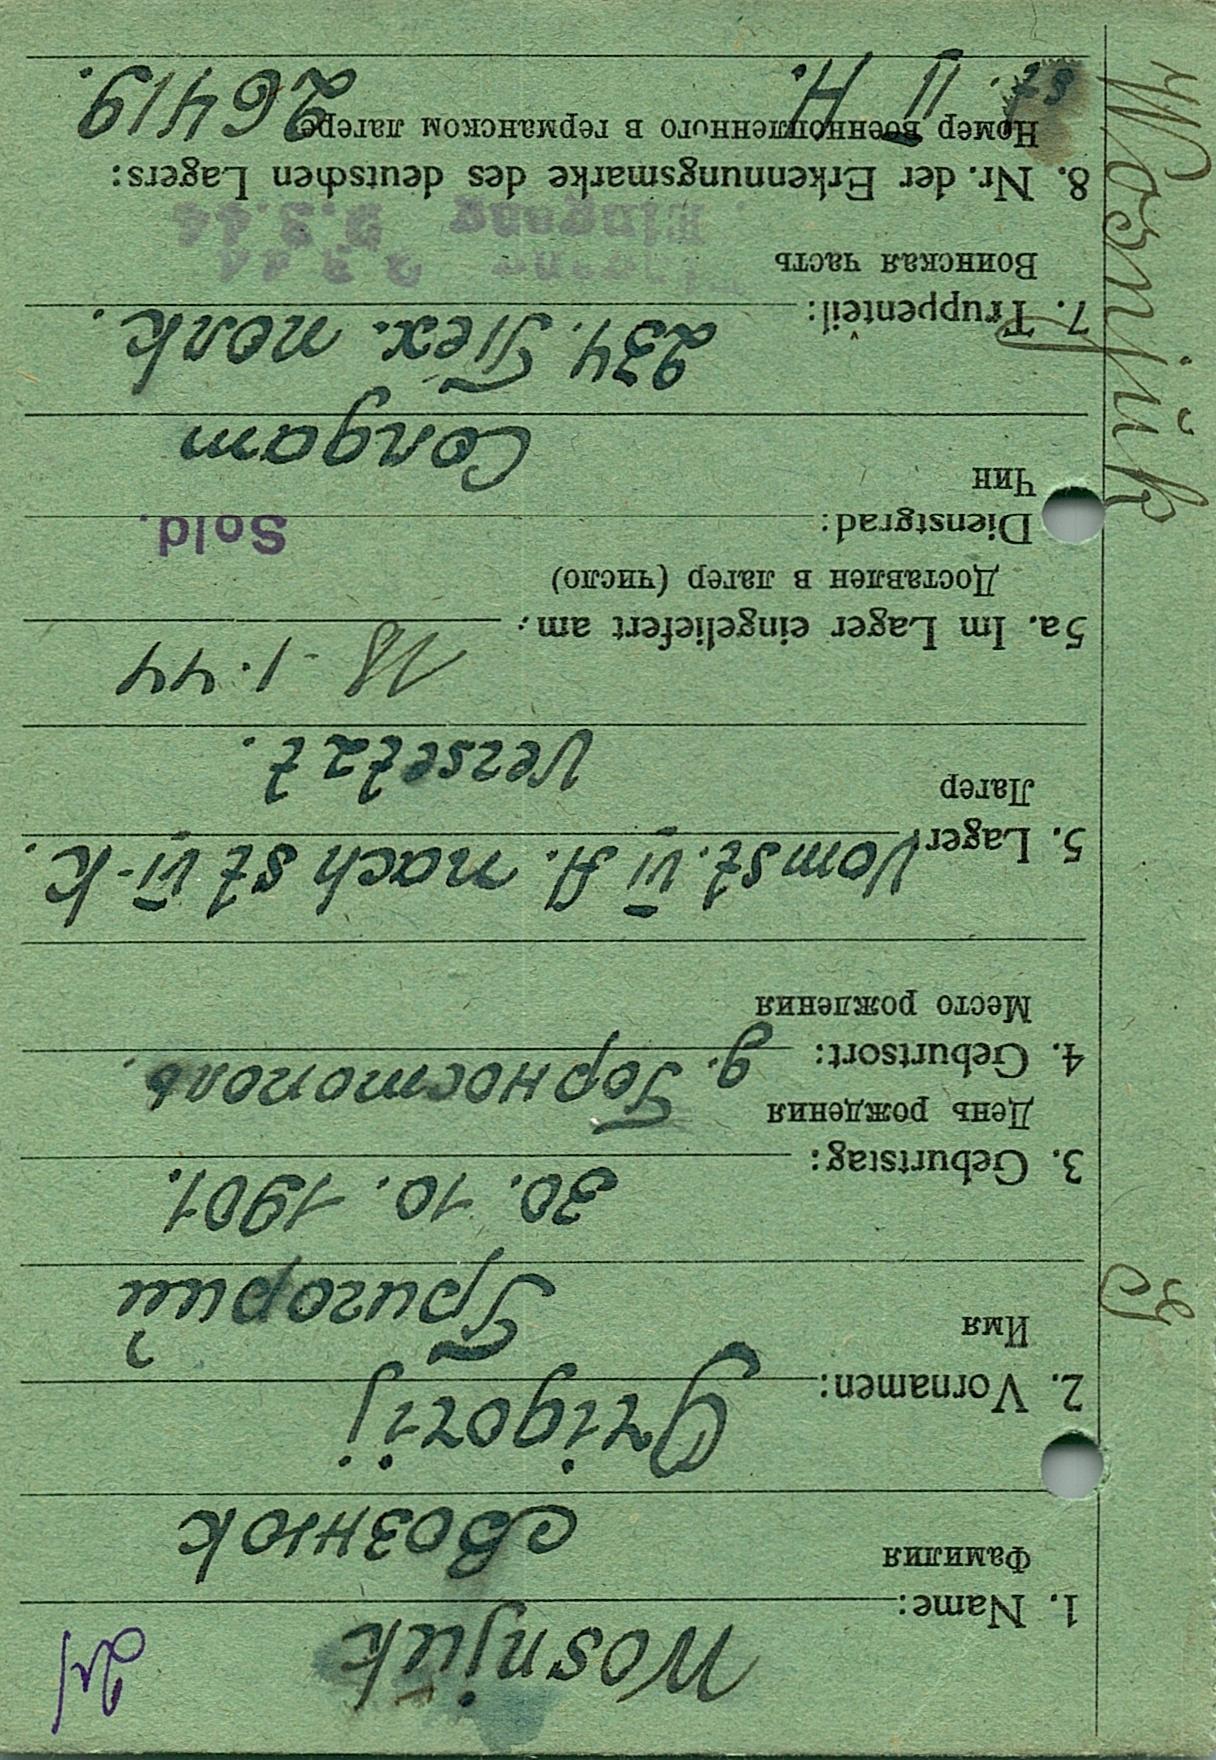 Wosnjuk
1. Name:
Фамилия
Вознюк
Grigorij
2. Vornamen:
Имя
Григорий
30. 10. 1901.
3. Geburtstag:
День рождения
д. Горностополь.
4. Geburtsort:
Место рождения
Vom st. VI A. nach st VI-K.
5. Lager
Лагер
Versetzt.
18-1.44
5a. Im Lager eingeliefert am:
Доставлен в лагер (число)
Sold.
Dienstgrad:
Чин
Солдат
234. Тех. полк.
7. Truppenteil:
Воинская часть
Eingang 9.3.44
8. Nr. der Erkennungsmarke des deutschen Lagers:
Номер военнопленного в германском лагере
st. II H. 26419.
Wosnjuk